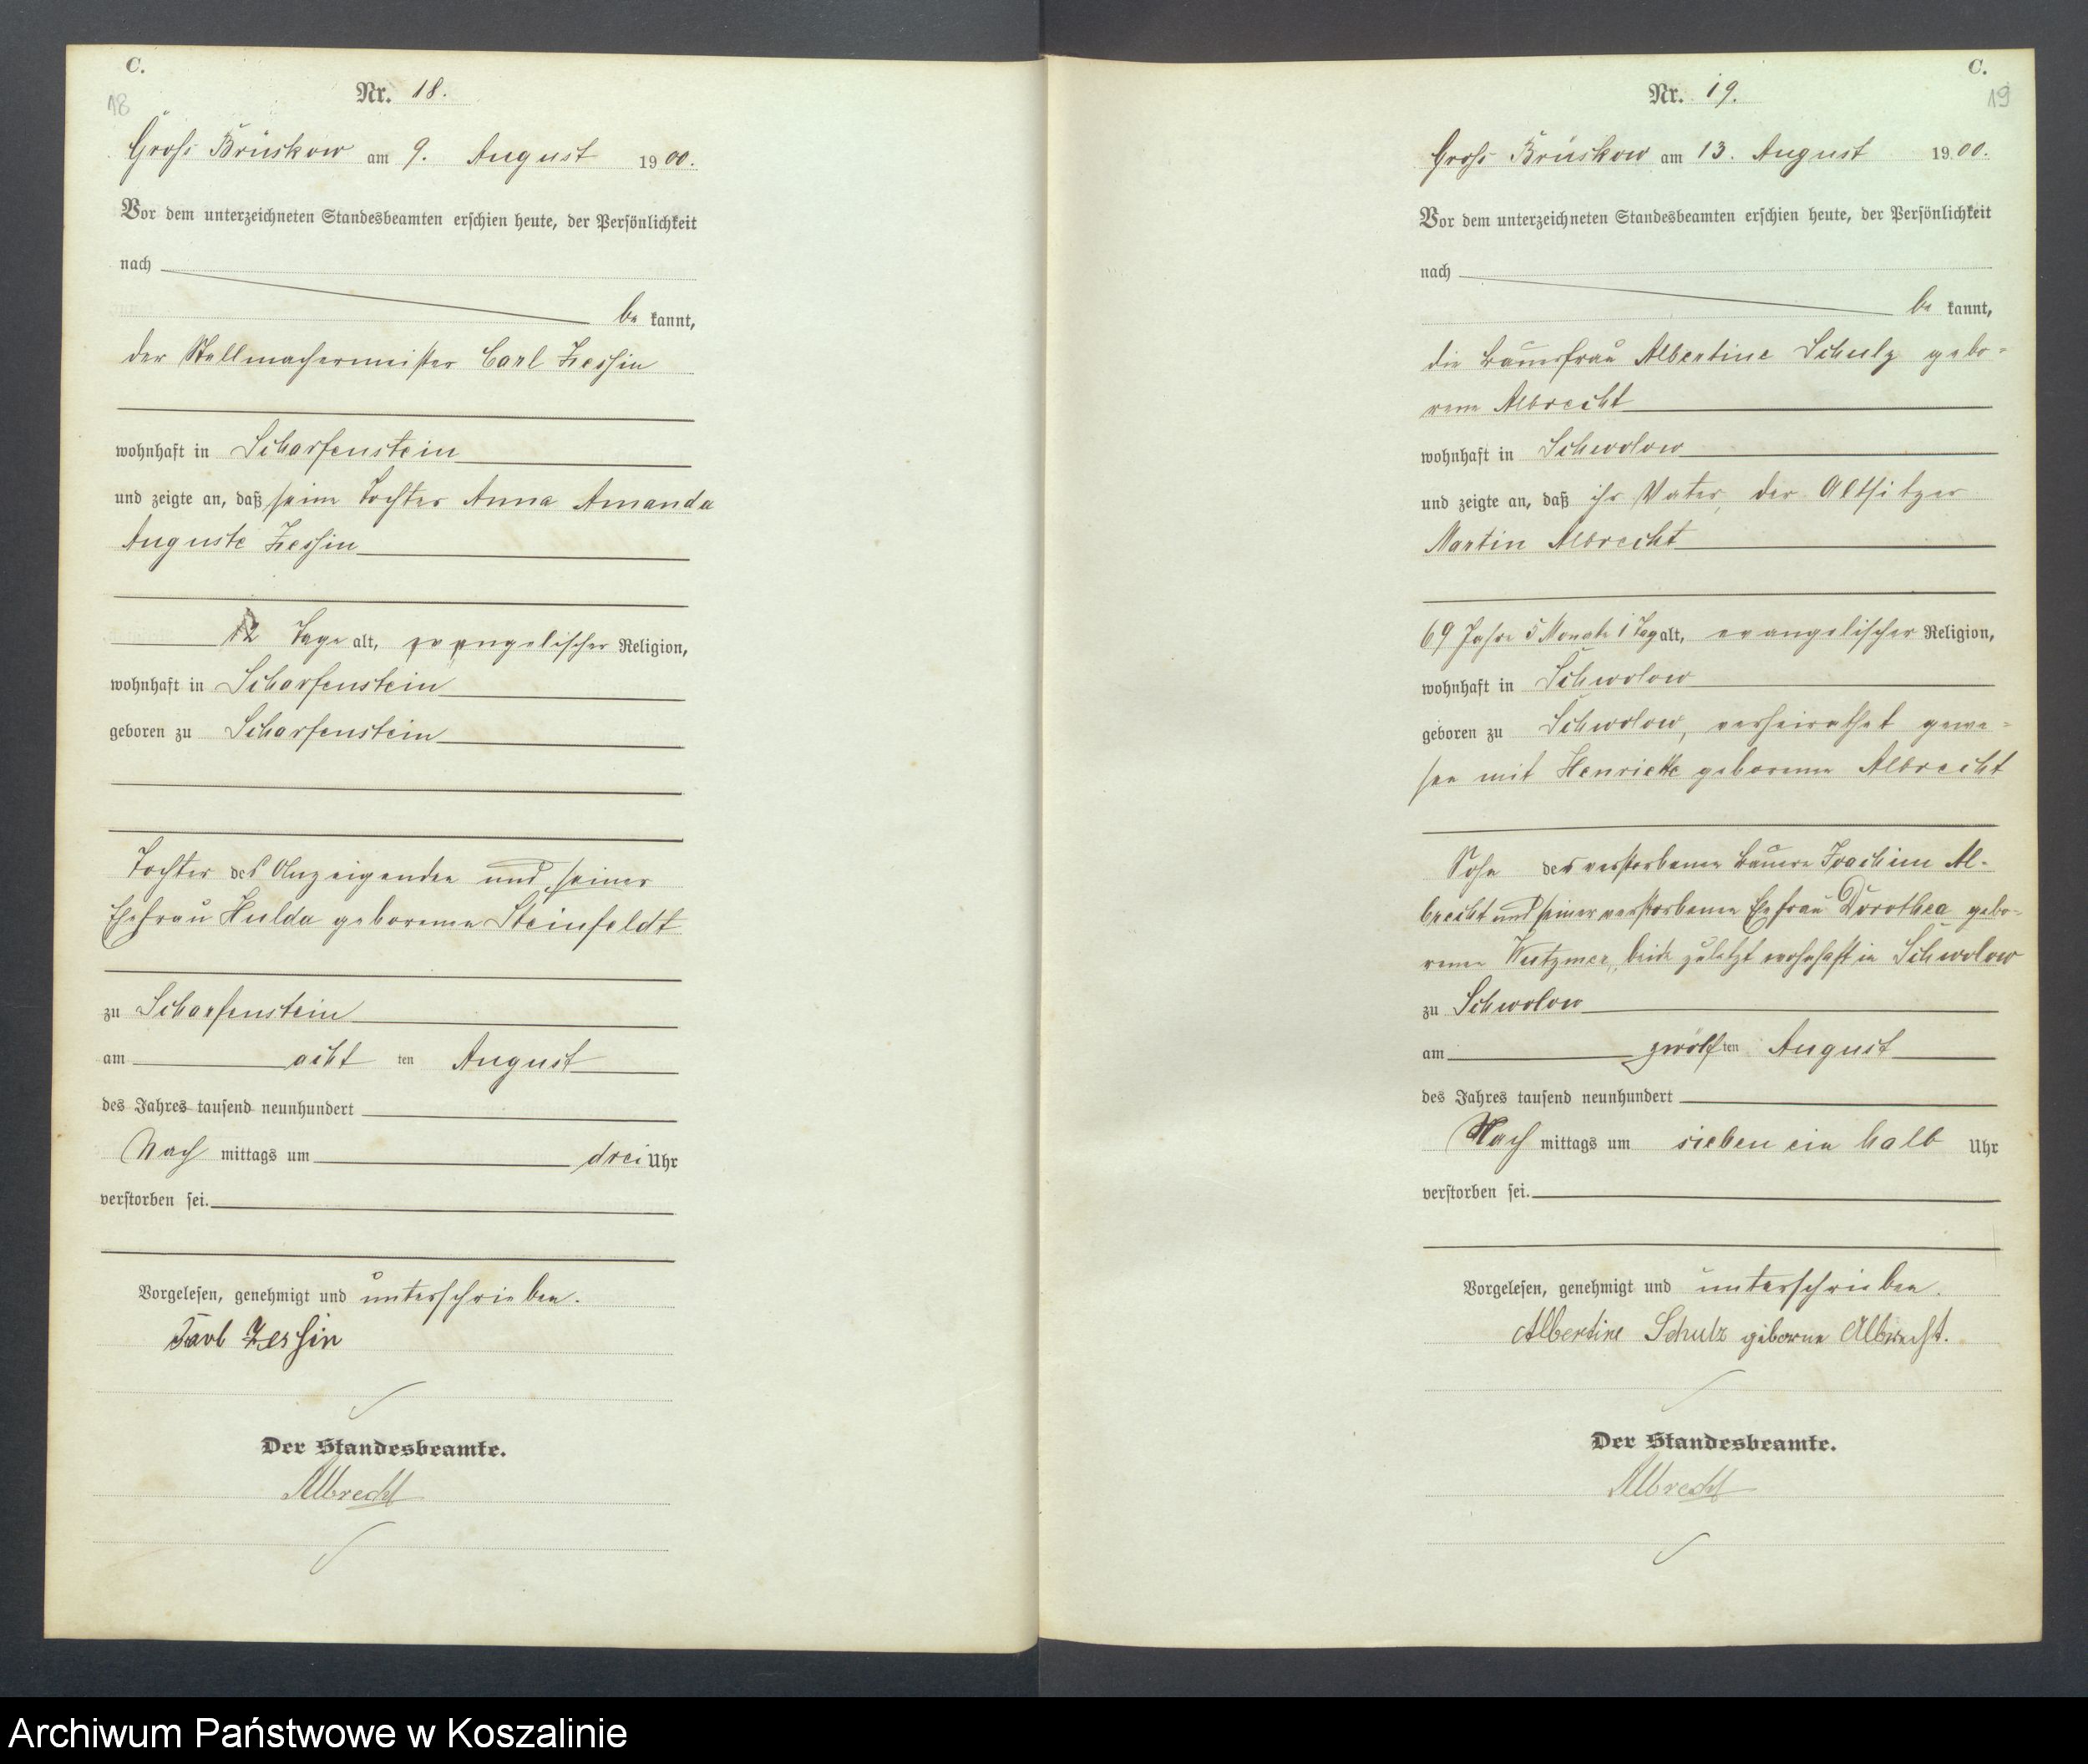 C.
18
Nr. 18.
Gross Brüskow am 9. August 1900.
Vor dem unterzeichneten Standesbeamten erschien heute, der Persönlichkeit
nach
be kannt,
der Stellmachermeister Carl Zessin
wohnhaft in Scharfenstein
und zeigte an, daß seine Tochter Anna Amanda
Auguste Zessin
12 Tage alt, evangelischer Religion,
wohnhaft in Scharfenstein
geboren zu Scharfenstein
Tochter des Anzeigenden und seiner
Ehefrau Hulda geborenen Steinfeldt
zu Scharfenstein
am acht ten August
des Jahres tausend neunhundert
Nach mittags um drei Uhr
verstorben sei.
Vorgelesen, genehmigt und unterschrieben.
Karl Zessin
Der Standesbeamte.
Albrecht
C.
19
Nr. 19.
Gross Brüskow am 13. August 1900.
Vor dem unterzeichneten Standesbeamten erschien heute, der Persönlichkeit
nach
be kannt,
die Bauersfrau Albertine Schulz gebo-
rene Albrecht
wohnhaft in Schwolow
und zeigte an, daß ihr Vater, der Altsitzer
Martin Albrecht
69 Jahre 5 Monate 1 Tag alt, evangelischer Religion,
wohnhaft in Schwolow
geboren zu Schwolow, verheirathet gewe-
sen mit Henriette geborenen Albrecht
Sohn des verstorbenen Bauern Joachim Al-
brecht und seiner verstorbenen Ehefrau Dorothea gebo-
renen beide zuletzt wohnhaft in Schwolow
zu Schwolow
am zwölf ten August
des Jahres tausend neunhundert
Nach mittags um sieben ein halb Uhr
verstorben sei.
Vorgelesen, genehmigt und unterschrieben.
Albertine Schulz geborne Albrecht.
Der Standesbeamte.
Albrecht
Archiwum Państwowe w Koszalinie